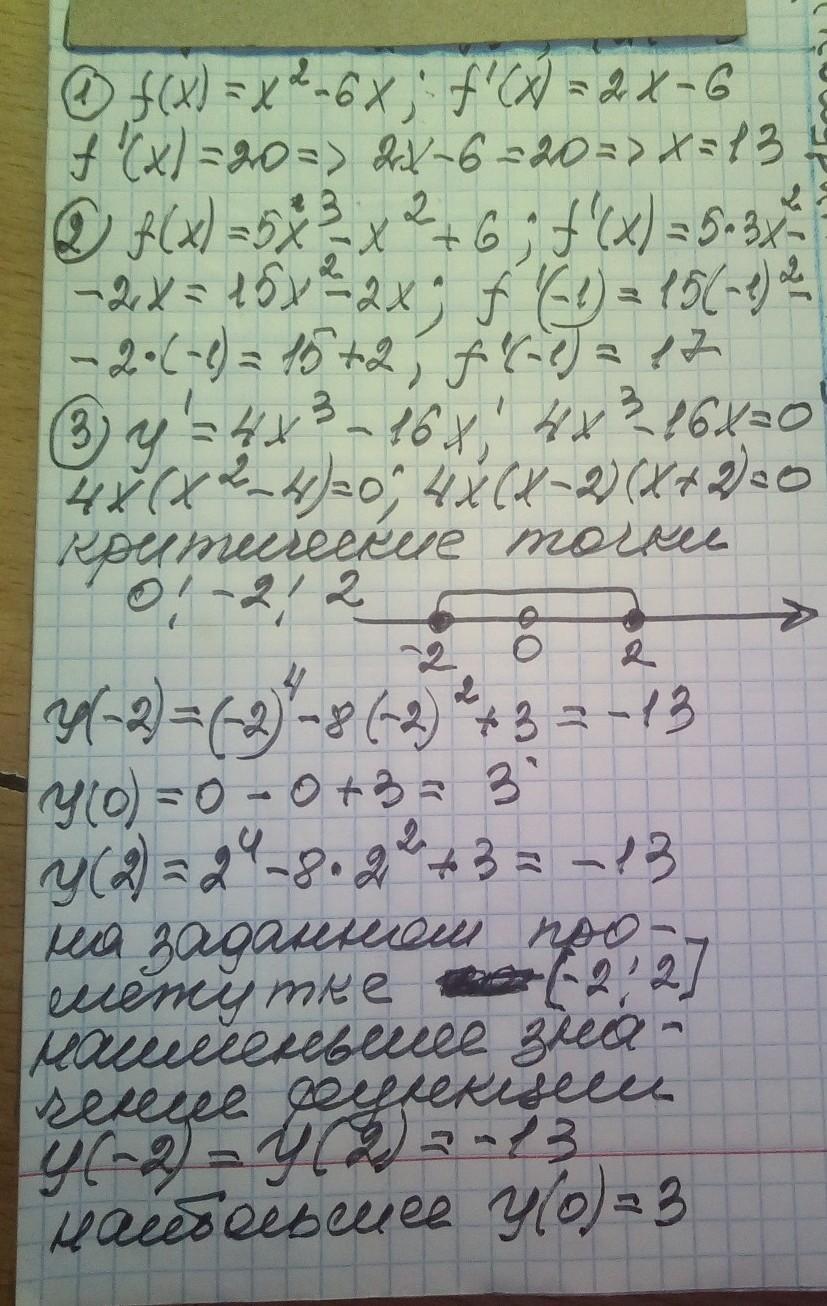 ① f(x) = x² - 6x ; f'(x) = 2x - 6
f'(x) = 20 => 2x - 6 = 20 => x = 13
② f(x) = 5x³ - x² + 6 ; f'(x) = 5·3x² -
- 2x = 15x² - 2x ; f'(-1) = 15(-1)² -
- 2·(-1) = 15 + 2 ; f'(-1) = 17
③ y' = 4x³ - 16x ; 4x³ - 16x = 0
4x(x² - 4) = 0 ; 4x(x - 2)(x + 2) = 0
критические точки
0 ; -2 ; 2
-2 0 2
y(-2) = (-2)⁴ - 8(-2)² + 3 = -13
y(0) = 0 - 0 + 3 = 3
y(2) = 2⁴ - 8·2² + 3 = -13
на заданном про-
межутке [-2 ; 2]
наименьшее зна-
чение функции
y(-2) = y(2) = -13
наибольшее y(0) = 3